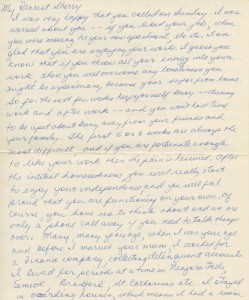 My Dearest Sherry
I was very happy that you called on Sunday. I was
worried about you -- if you liked your job, when
you were moving to your new apartment etc etc. I am
glad that you are enjoying your work. I guess you
know that if you throw all your energy into your
work then you will overcome any loneliness you
might be experiencing because your away from home.
So for the most part works enjoy and busy during
work and after work -- and you won't have time
to be upset about being away from your friends and
your family. The first 6 or 8 weeks are always the
most difficult, and if you are fortunate enough
to like your work then the pain is lessened. After
the initial homesickness you will really start
to enjoy your independence and you will feel
proud that you are functioning on your own. Of
course, you have us to think about and we are
only a phone call away if you need to talk things
over. Many, many years ago, when I was your age
and before I married your mum, I worked for
a finance company, collecting delinquent accounts.
I lived for periods at a time in Niagara Falls,
Simcoe, Brantford, St Catharines etc. I stayed
in boarding houses, which means I had a room